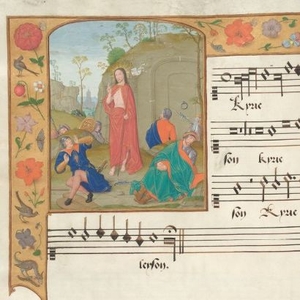 Kyrie
son kyrie
son Kyrie
leyson.